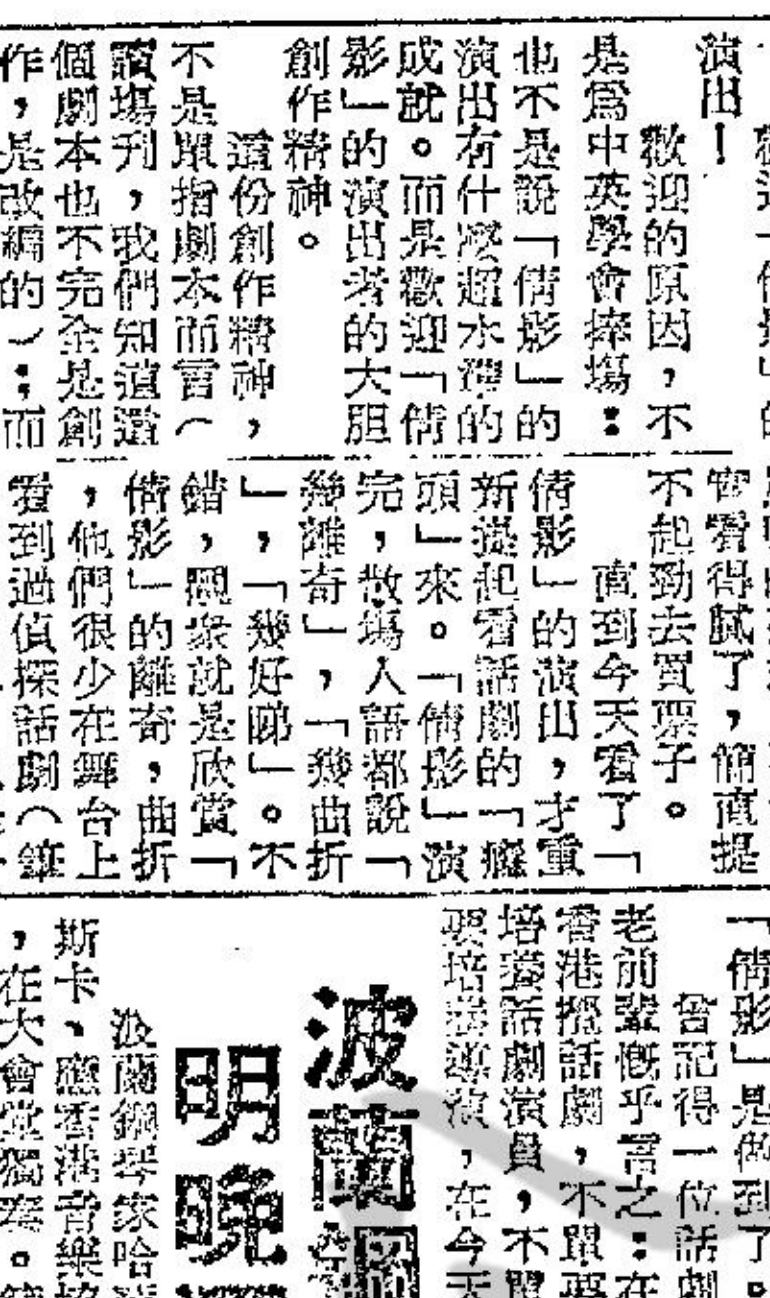 演出！
歡迎的原因，不
是爲中英學會捧塲：
也不是說「倩影」的
演出有什麼超水準的
成就。而是歡迎「倩
影」的演出者的大胆
創作精神。
這份創作精神，
不是單指劇本而言（
讀塲刊，我們知道這
個劇本也不完全是創
作，是改編的）：而
看得膩了，簡直提
不起勁去買票子。
直到今天看了「
倩影」的演出，才重
新提起看話劇的「癮
頭」來。「倩影」演
完，散塲人語都說「
幾離奇」，「幾曲折
」，「幾好睇」。不
錯，觀衆就是欣賞「
倩影」的離奇，曲折
，他們很少在舞台上
看到過偵探話劇（
「倩影」是做到了。
曾記得一位話劇
老前輩慨乎言之：在
香港攪話劇，不單要
培養話劇演員，不單
要培養導演，在今天
波蘭鋼
明晚
波蘭鋼琴家哈
斯卡、應香港音樂協
，在大會堂獨奏。